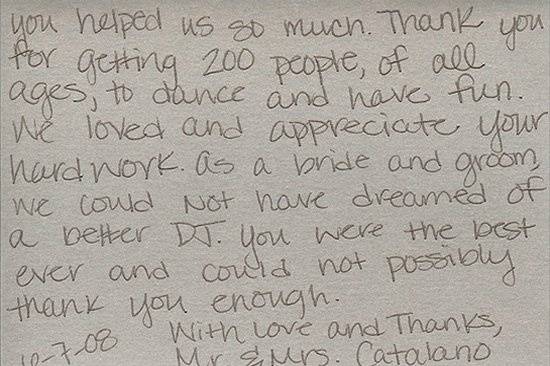 you helped us so much. Thank you
for getting 200 people, of all
ages, to dance and have fun.
We loved and appreciate your
hard work. As a bride and groom,
we could not have dreamed of
a better DJ. You were the best
ever and could not possibly
thank you enough.
With Love and Thanks,
10-7-08 Mr. & Mrs. Catalano